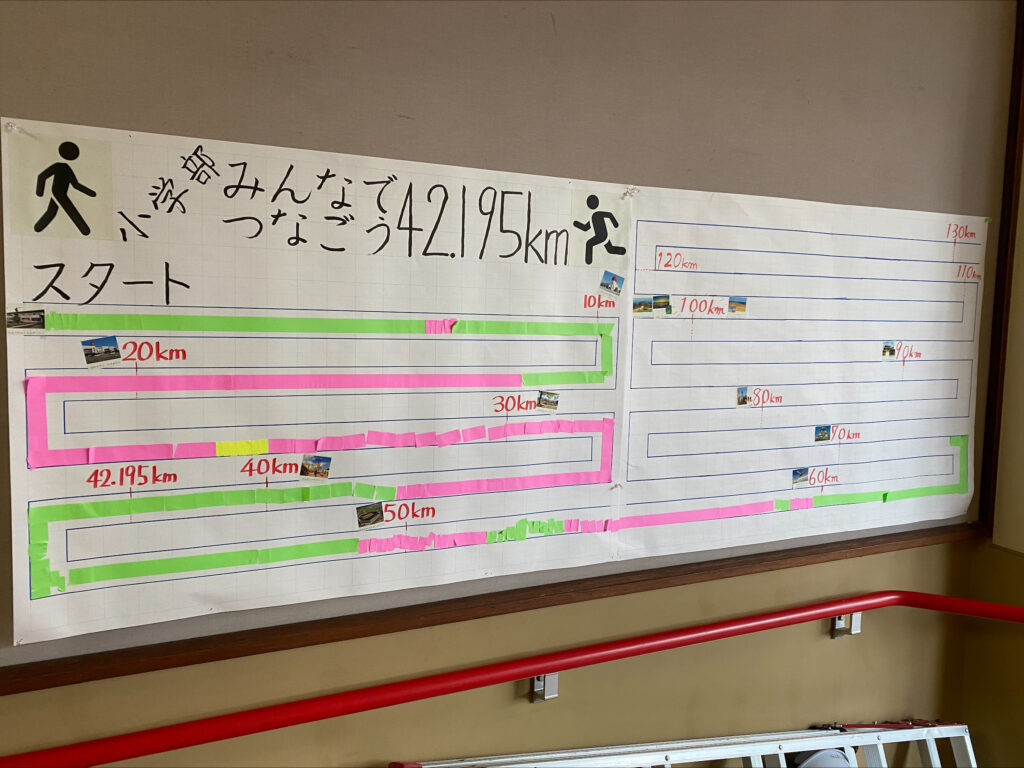 小学部
みんなで
つなごう
42.195km
スタート
10km
20km
30km
42.195km
40km
50km
60km
70km
80km
90km
100km
110km
120km
130km